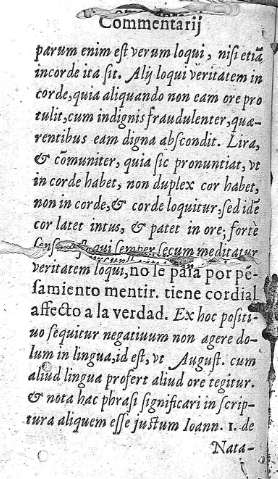 Commentarij
parum enim est verum loqui, nisi etiã
in corde ita sit. Alij loqui veritatem in
corde, quia aliquando non eam ore pro
tulit, cum indignis fraudulenter, quæ-
rentibus eam digna abscondit. Lira,
& comuniter, quia sic pronuntiat, vt
in corde habet, non duplex cor habet,
non in corde, & corde loquitur, sed idẽ
cor latet intus, & patet in ore, forte
qui semper secum meditatur
veritatem loqui, no le passa por pẽ-
samiento mentir. tiene cordial
affecto a la verdad. Ex hoc positi-
uo sequitur negatiuum non agere do-
lum in lingua, id est, vt August. cum
aliud lingua profert aliud ore tegitur.
& nota hac phrasi significari in scrip-
tura aliquem esse justum Ioann. 1. de
Nata-